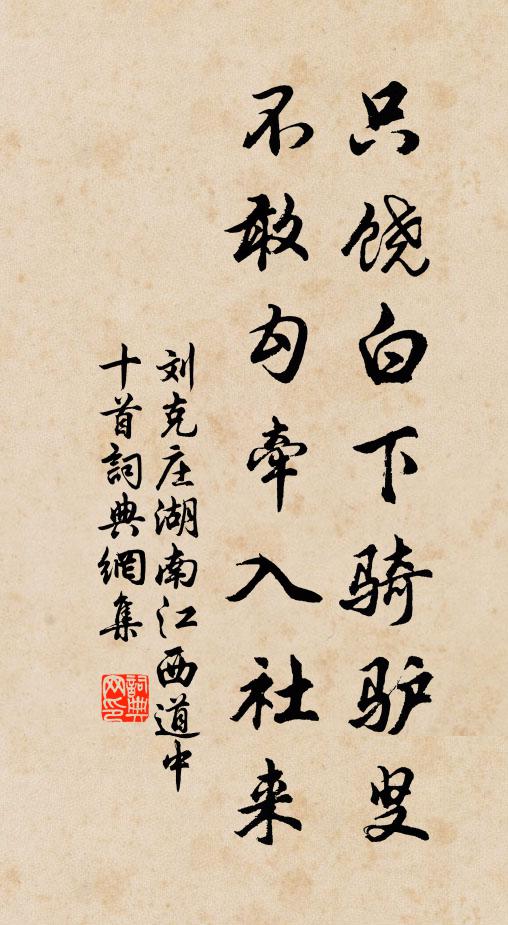 只饶白下骑驴叟
不敢勾牵入社来
刘克庄湖南江西道中
十首詞典網集
詞典
网印